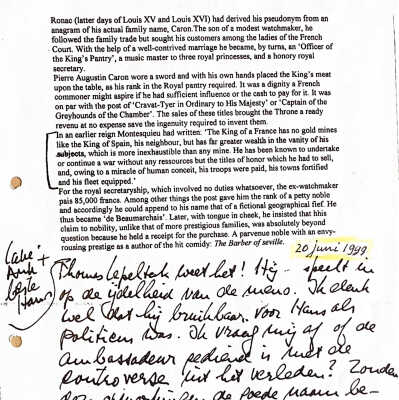 Ronac (latter days of Louis XV and Louis XVI) had derived his pseudonym from an
anagram of his actual family name, Caron.The son of a modest watchmaker, he
followed the family trade but sought his customers among the ladies of the French
Court. With the help of a well-contrived marriage he became, by turns, an 'Officer of
the King's Pantry', a music master to three royal princesses, and a honory royal
secretary.
Pierre Augustin Caron wore a sword and with his own hands placed the King's meat
upon the table, as his rank in the Royal pantry required. It was a dignity a French
commoner might aspire if he had sufficient influence or the cash to pay for it. It was
on par with the post of 'Cravat-Tyer in Ordinary to His Majesty' or 'Captain of the
Greyhounds of the Chamber'. The sales of these titles brought the Throne a ready
revenu at no expense save the ingenuity required to invent them.
In an earlier reign Montesquieu had written. 'The King of France has no gold mines
like the King of Spain, his neighbour, but has far greater wealth in the vanity of his
subjects, which is more inexhaustible than any mine. He has been known to undertake
or continue a war without any ressources but the titles of honor which he had to sell,
and, owing to a miracle of human conceit, his troops were paid, his towns fortified
and his fleet equipped.'
For the royal secretaryship, which involved no duties whatsoever, the ex-watchmaker
pais 85,000 francs. Among other things the post gave him the rank of a petty noble
and accordingly he could append to his name that of a fictional geographical fief. He
thus became 'de Beaumarchais'. Later, with tongue in cheek, he insisted that hhis
claim to nobility, unlike that of more prestigious families, was absolutely beyond
question because he held a receipt for the purchase. A parvenue noble with an envy-
rousing prestige as a author of the hit comidy: The Barber of seville.
20 juni 1999
Thomas Lepeltak weet het! Hij speelt in
op de ijdelheid van de mens. Ik denk
wel dat hij bruikbaar voor Hans als
politicus was. Ik vraag mij af of de
ambassadeur gediend is met de
controverse uit het verleden? Zonden
de goede naam be-